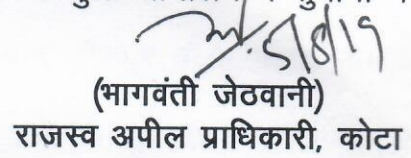 5/8/19
(भागवंती जेठवानी)
राजस्व अपील प्राधिकारी, कोटा